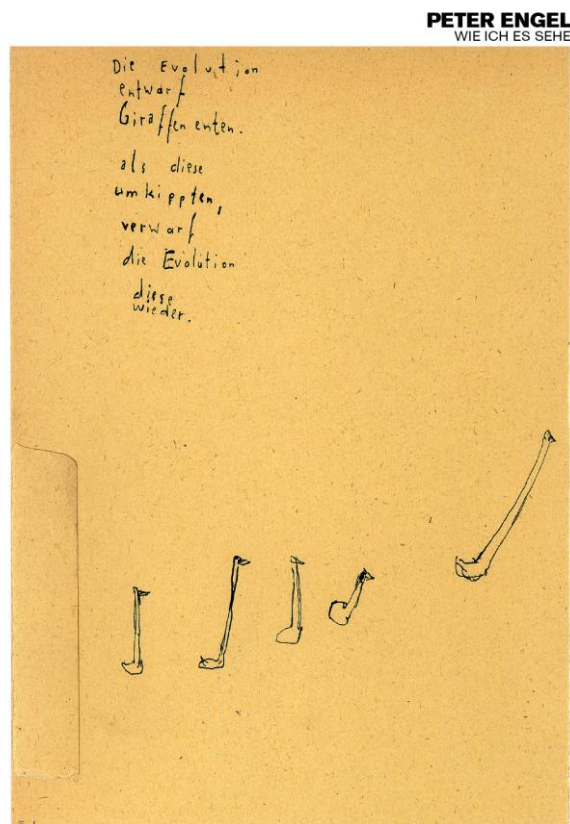 PETER ENGEL
WIE ICH ES SEHE
Die Evolution
entwarf
Giraffenenten.
als diese
umkippten,
verwarf
die Evolution
diese
wieder.